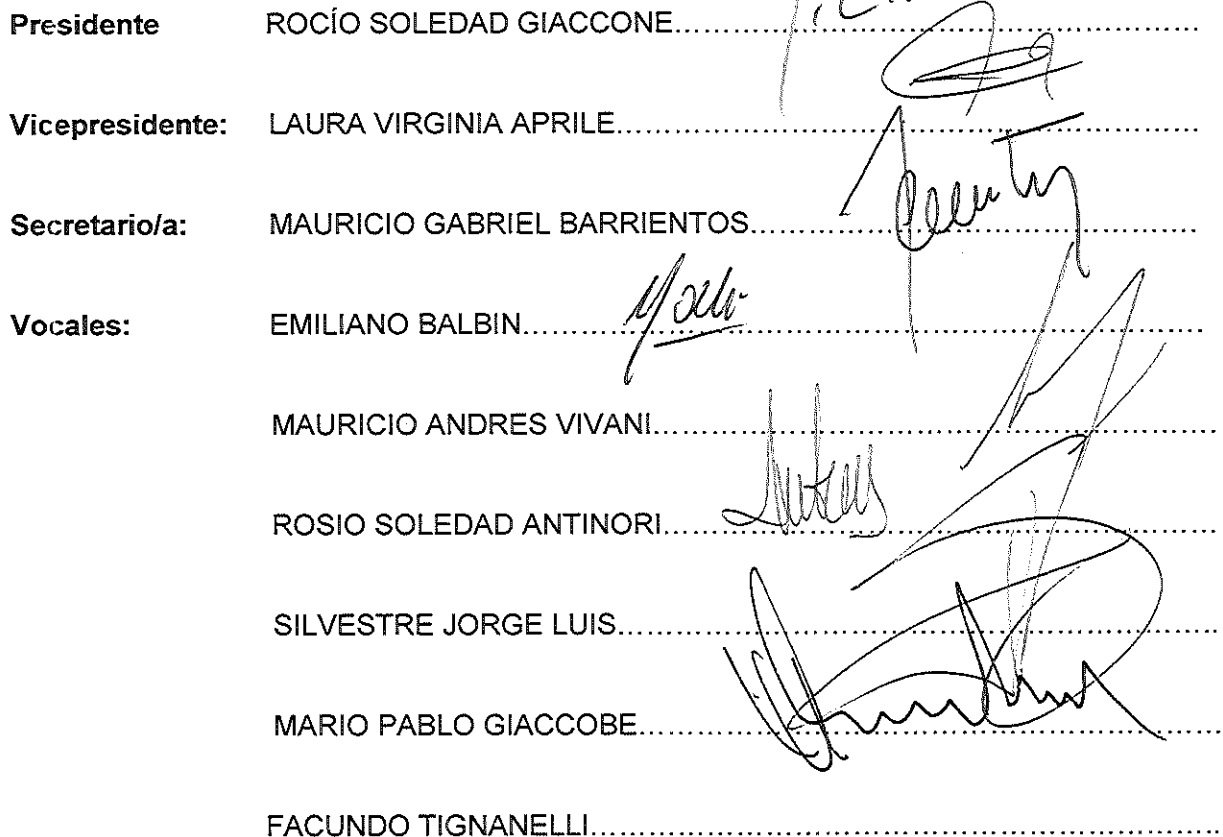 Presidente ROCÍO SOLEDAD GIACCONE
Vicepresidente: LAURA VIRGINIA APRILE
Secretario/a: MAURICIO GABRIEL BARRIENTOS
Vocales: EMILIANO BALBIN
MAURICIO ANDRES VIVANI
ROSIO SOLEDAD ANTINORI
SILVESTRE JORGE LUIS
MARIO PABLO GIACCOBE
FACUNDO TIGNANELLI